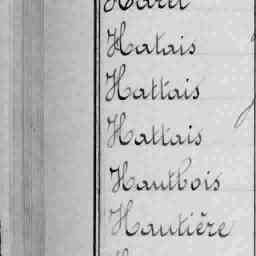 Hatais
Hattais
Hattais
Hautbois
Hautière